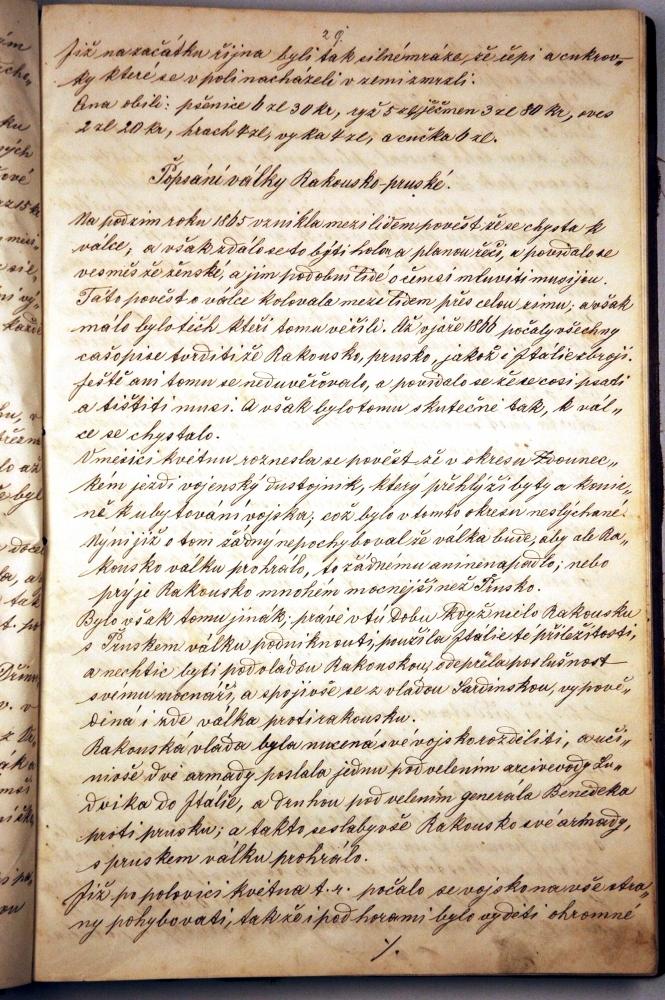 29.
Již na začátku října byli tak silné mráze, že čépi a cukrov„
ky které se v poli nacházeli v zemi zmrzli.
Cna obilí: pšenice 6 zl 30 kr, ryž 5 zl, ječmen 3 zl 80 kr, oves
2 zl 20 kr, hrach 4 zl, vyka 4 zl, a čučka 6 zl.
Popsání války Rakousko-pruské.
Na podzim roku 1865 vznikla mezi lidem pověst že se chysta k
válce, a však zdálo se to býti holou a planou řečí, a povídalo se
vesměs že ženské, a jim podobní lidé o čemsi mluviti musijou.
Tato pověst o válce kolovala meze lidem přes celou zimu, a však
málo bylo těch kteří tomu věřili. Až v jaře 1866 počaly všechny
časopise tvrditi že Rakousko, prusko, jakož i Itálie zbrojí.
Ještě ani tomu se nedůvěřovalo, a povídalo se že se cosi psati
a tištiti musí. A však bylo tomu skutečně tak, k vál„
ce se chystalo.
V měsíci květnu roznesla se pověst že v okresu Zdounec„
kém jezdí vojenský důstojník, který přehlýží byty a konic„
ně k ubytování vojska, což bylo v tomto okresu neslýchané.
Nyní již o tom žádný nepochyboval že válka bude, aby ale Ra„
kousko válku prohrálo, to žádnemu ani nenapadlo; nebo
prý je Rakousko mnohém mocnější než Prusko.
Bylo však tomu jinák: právě v tú dobu když mělo Rakousku
s Pruskem válku podniknouti, použila Itálie te příležitosti,
a nechtíc byti pod vládou Rakouskou, odepřela poslušnost
svému mocnáři, a spojivše se z vladou Sardinskou, vypově„
diná i zde válka proti rakousku.
Rakouská vláda byla nucená své vojsko rozděliti, a uči„
nivše dvě armády poslala jednu pod velením arcivevody Lu„
dvika do Itálie, a druhou pod velením generála Benedeka
proti prusku; a takto seslabyvše Rakousko své armády,
s pruskem válku prohrálo.
Již po polovici května t. r. počalo se vojsko na vše stra„
ny pohybovati, tak že i pod horami bylo vyděti ohromné
./.